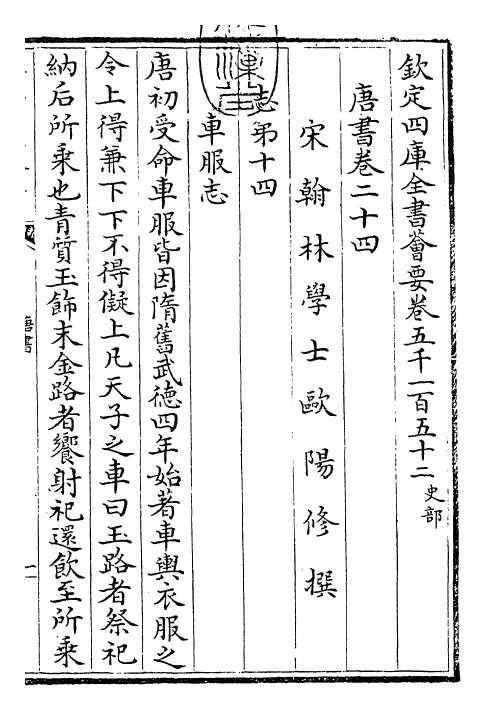 欽定四庫全書薈要卷五千一百五十二 史部
唐書卷二十四
宋翰林學士歐陽修撰
志第十四
車服志
唐初受命車服皆因隋舊武德四年始著車輿衣服之
令上得兼下下不得儗上凡天子之車曰玉路者祭祀
納后所乘也青質玉飾末金路者饗射祀還飲至所乘
唐書